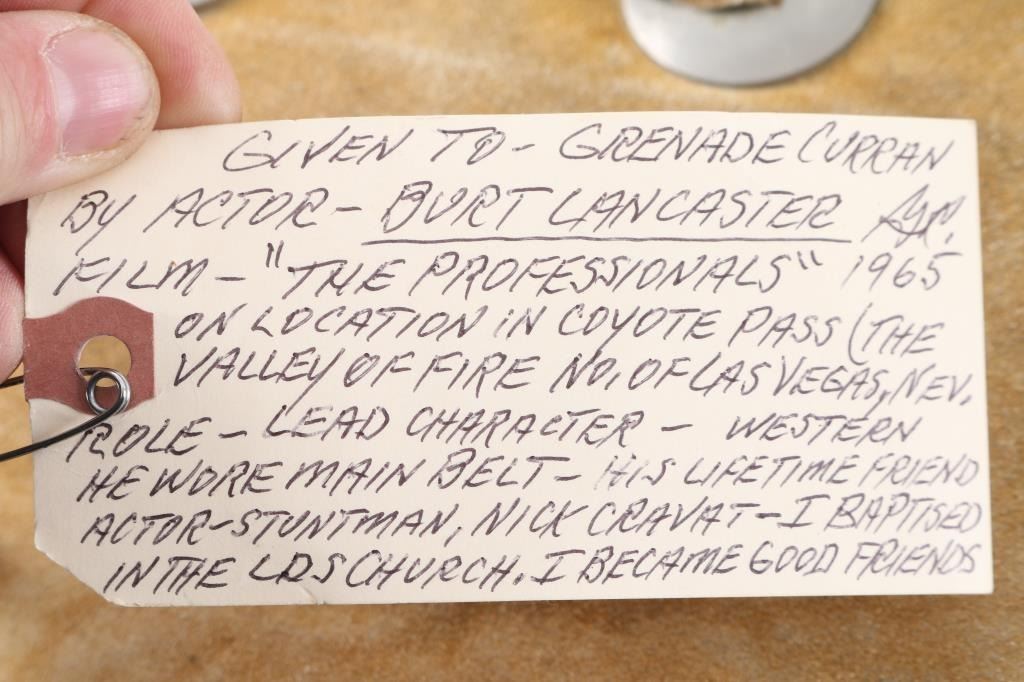 GIVEN TO - GRENADE CURRAN
BY ACTOR - BURT LANCASTER
FILM - "THE PROFESSIONALS" 1965
ON LOCATION IN COYOTE PASS (THE
VALLEY OF FIRE NO. OF LAS VEGAS, NEV.
ROLE - LEAD CHARACTER - WESTERN
HE WORE MAIN BELT - HIS LIFETIME FRIEND
ACTOR-STUNTMAN, NICK CRAVAT - I BAPTISED
IN THE LDS CHURCH. I BECAME GOOD FRIENDS